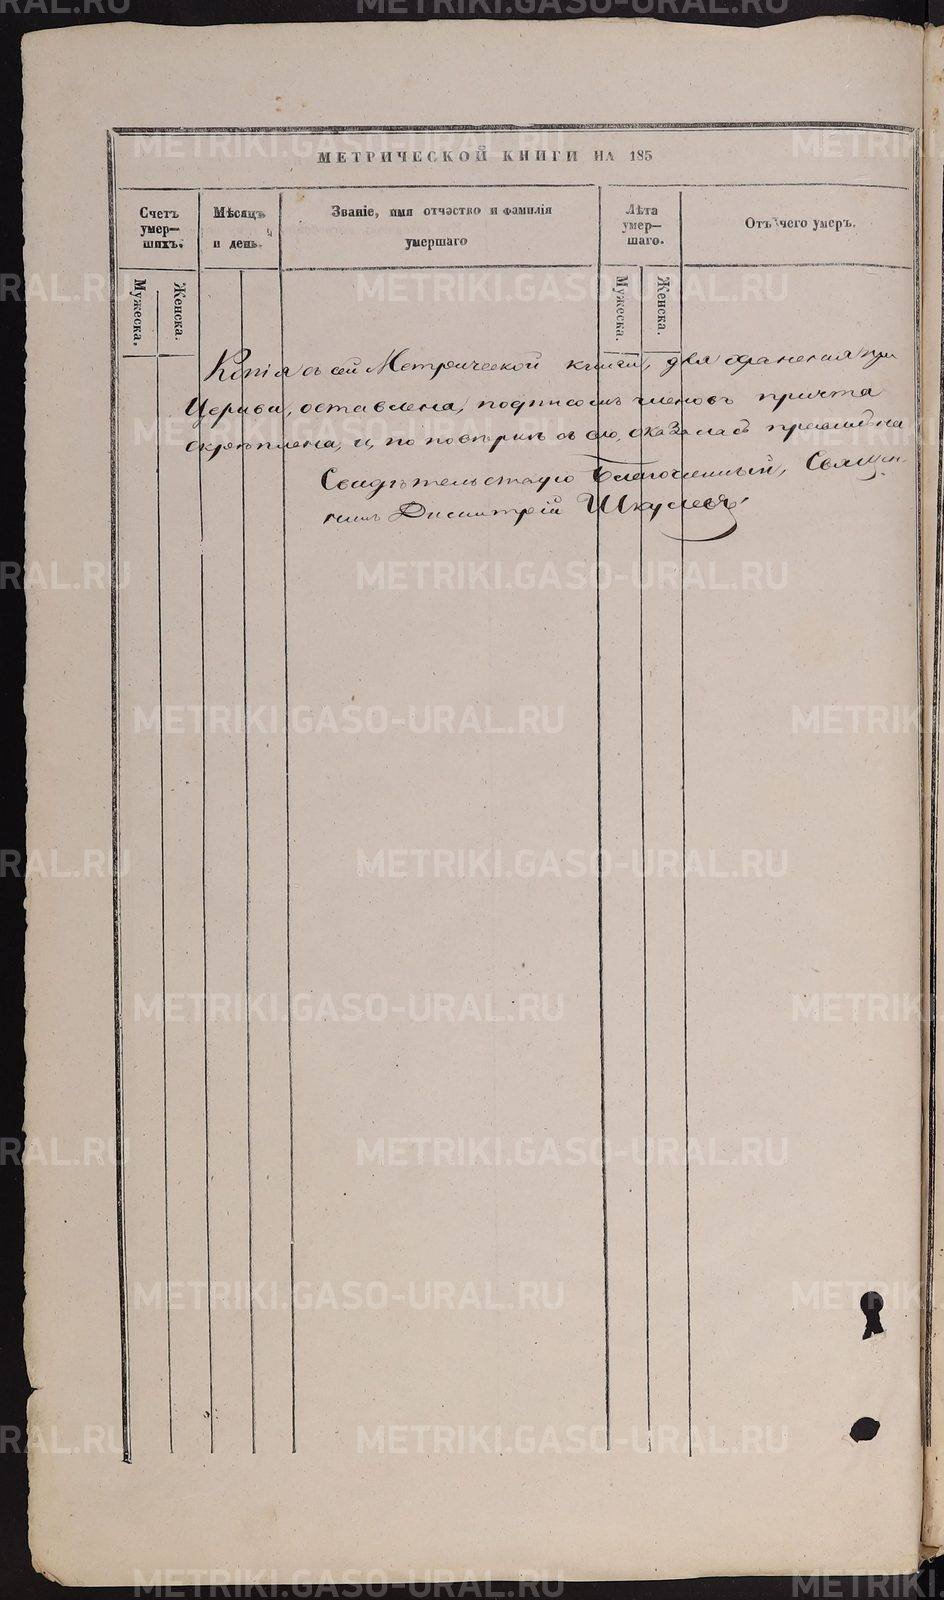 МЕТРИЧЕСКОЙ КНИГИ НА 185
Счетъ умер— шихъ.
Мѣсяцъ и день.
Званіе, имя отчэство и фамилія умершаго
Лѣта умер— шаго.
Отъ чего умеръ.
Мужеска.
Женска.
Мужеска.
Женска.
Копія съ сей Метрической книги, для храненія при
Церкви, оставлена, подписомъ членовъ причта
скрѣплена, и, по повѣркѣ съ сею, оказалась правильна
Свидѣтельствую Благочинный, Священ-
никъ Димитрій Шкулевъ
METRIKI.GASO-URAL.RU